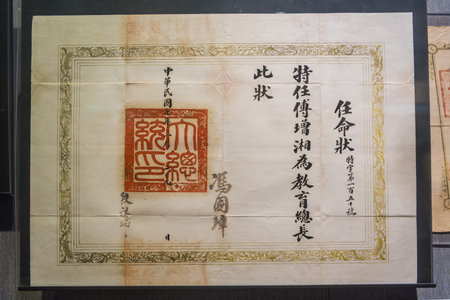 任命狀
特字第一百五十號
特任傅增湘為教育總長
此狀
馮國璋
大總統印
中華民國
日
段祺瑞